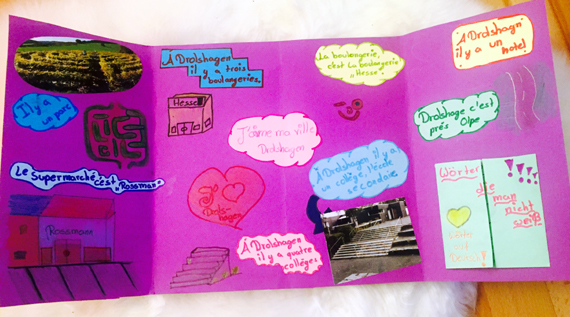 Il y a
un parc
Le Supermarché, c'est "Rossman"
Rossmann
Á Drolshagen
il y a trois
boulangeries.
Hesse
J'aime ma ville
Drolshagen
J
Drols-
hagen
Á Drolshagen
il y a quatre
collèges
La boulangerie,
c'est la boulangerie
"Hesse"
Á Drolshagen il y a
un collège, l'école
secondaire
Á Drolshagen
il y a un
hotel
Drolshage c'est
près Olpe
Wörter
die
man
nicht
weiß